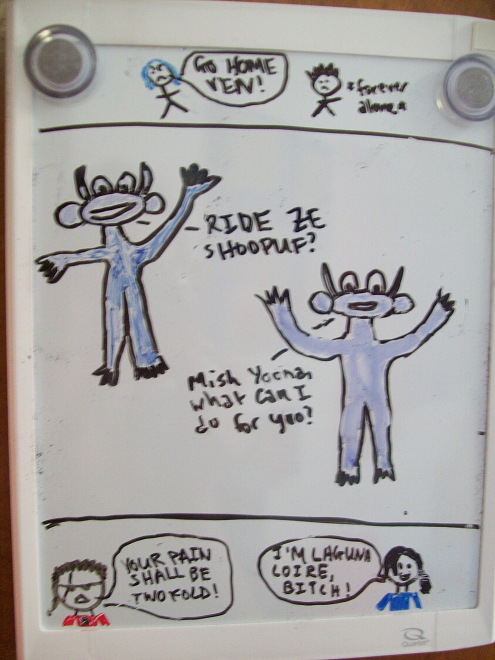 GO HOME
VEN!
*forever
alone*
RIDE ZE
SHOOPUF?
Mish Yoona,
what can I
do for yoo?
YOUR PAIN
SHALL BE
TWOFOLD!
I'M LAGUNA
LOIRE,
BITCH!
Quartet